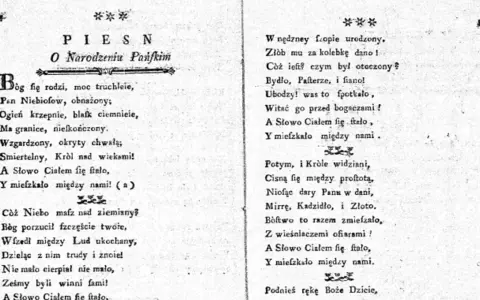 PIESN
O Narodzeniu Pańſkim
Bóg ſię rodzi, moc truchleie,
Pan Niebioſow, obnażony;
Ogień krzepnie, blaſk ciemnieie,
Ma granice, nieſkończony.
Wzgardzony, okryty chwałą;
Smiertelny, Król nad wiekami!
A Słowo Ciałem ſię ſtało,
Y mieſzkało między nami! (a)
Cóż Niebo maſz nad ziemiany?
Bóg porzucił ſzczęście twóie,
Wſzedł między Lud ukochany,
Dzieląc z nim trudy i znoie!
Nie mało cierpiał nie mało,
Żeſmy byli winni ſami!
A Słowo Ciałem ſię ſtało,
W nędzney ſzopie urodzony,
Złób mu za kolebkę dano!
Cóż ieſt? czym był otoczony?
Bydło, Paſterze, i ſiano!
Ubodzy! was to ſpotkało,
Witać go przed bogaczami!
A Słowo Ciałem ſię ſtało,
Y mieſzkało między nami.
Potym, i Króle widziani,
Ciſną ſię między proſtotą,
Nioſąc dary Panu w dani,
Mirrę, Kadzidło, i Złoto.
Bóſtwo to razem zmieſzało,
Z wieśniaczemi ofiarami!
A Słowo Ciałem ſię ſtało,
Y mieſzkało między nami.
Podnieś rękę Boże Dziecie,